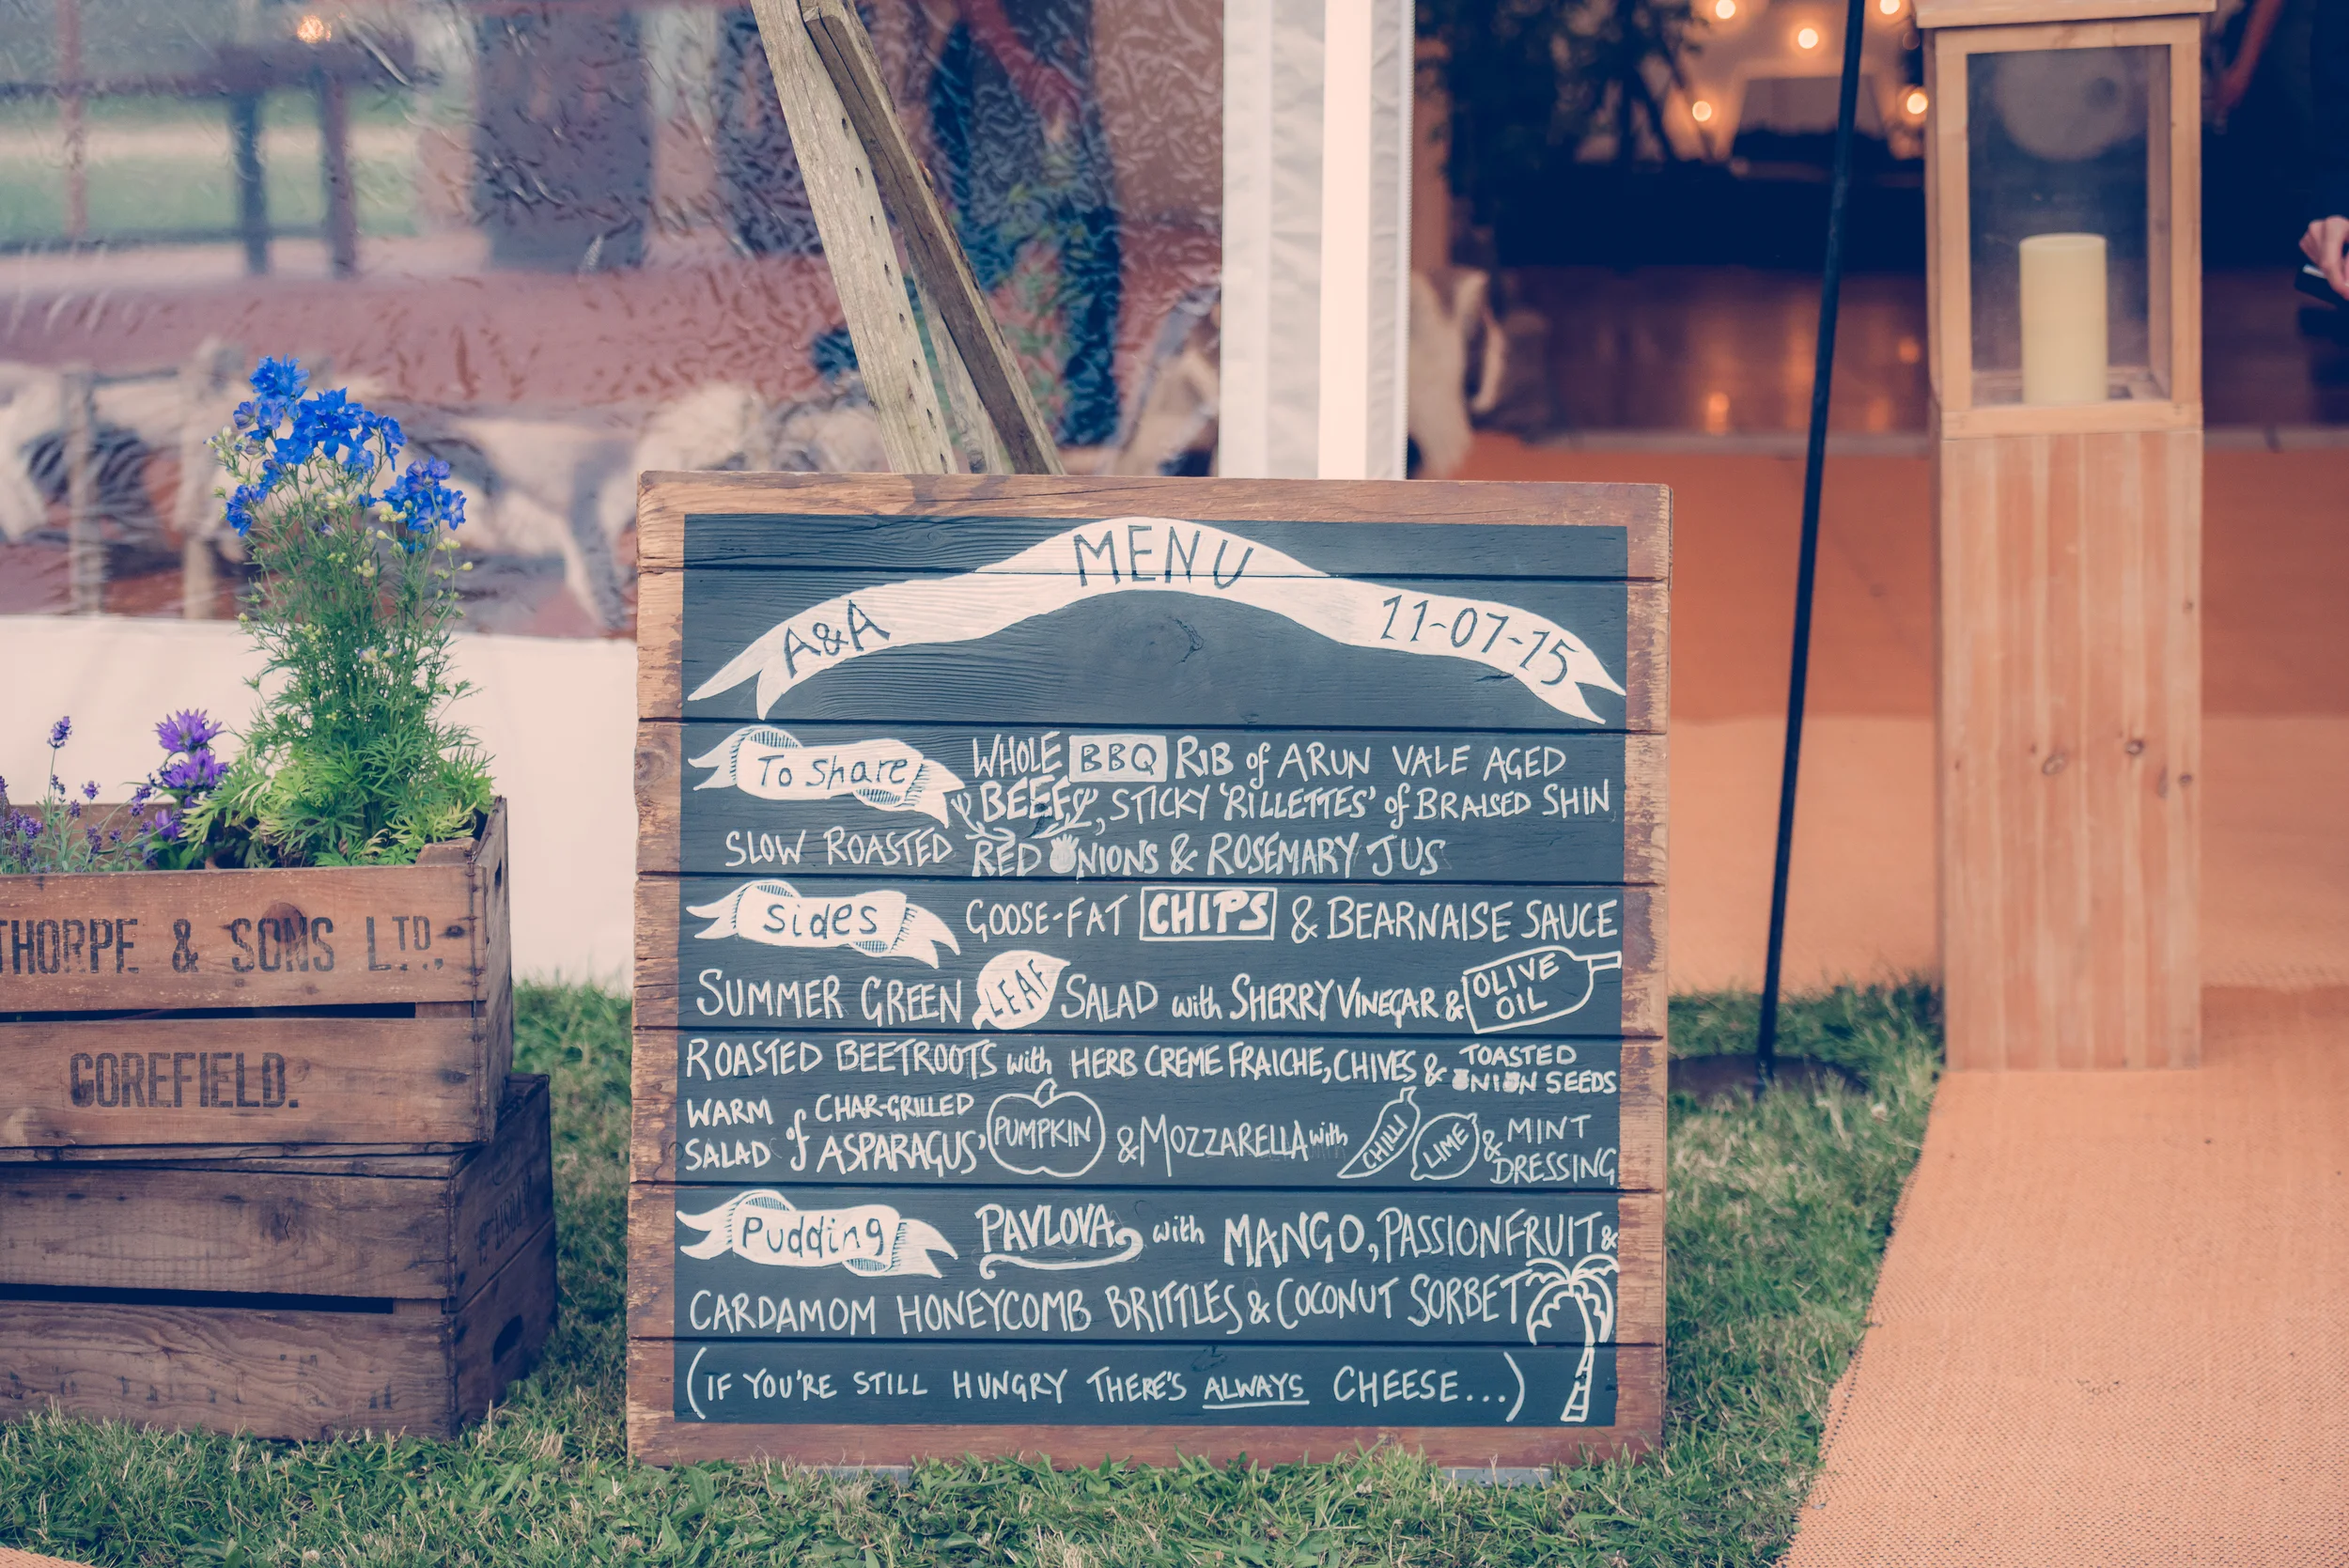 MENU
A&A
11-07-15
To Share
WHOLE BBQ RIB of ARUN VALE AGED
BEEF, STICKY 'RILLETTES' of BRAISED SHIN,
SLOW ROASTED RED ONIONS & ROSEMARY JUS
Sides
GOOSE-FAT CHIPS & BEARNAISE SAUCE
SUMMER GREEN LEAF SALAD with SHERRY VINEGAR & OLIVE OIL
ROASTED BEETROOTS with HERB CREME FRAICHE, CHIVES & TOASTED ONION SEEDS
WARM SALAD of CHAR-GRILLED ASPARAGUS, PUMPKIN & MOZZARELLA with CHILLI LIME & MINT DRESSING
Pudding
PAVLOVA with MANGO, PASSIONFRUIT &
CARDAMOM HONEYCOMB BRITTLES & COCONUT SORBET
(IF YOU'RE STILL HUNGRY THERE'S ALWAYS CHEESE...)
THORPE & SONS LTD,
GOREFIELD.